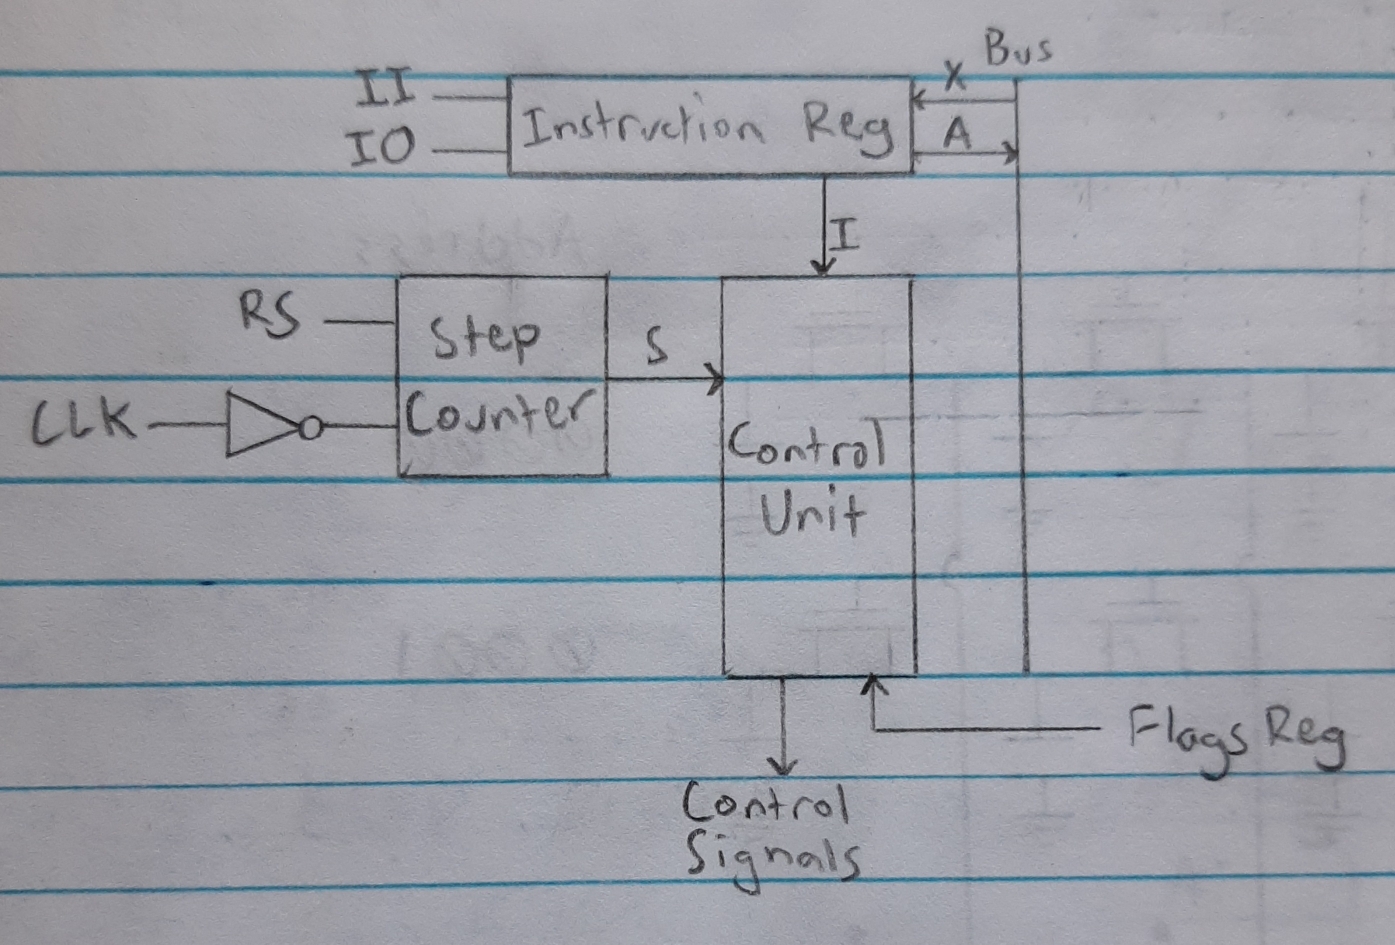 Bus
II
X
Instruction Reg
IO
A
I
RS
Step
Counter
S
CLK
Control
Unit
Flags Reg
Control
Signals